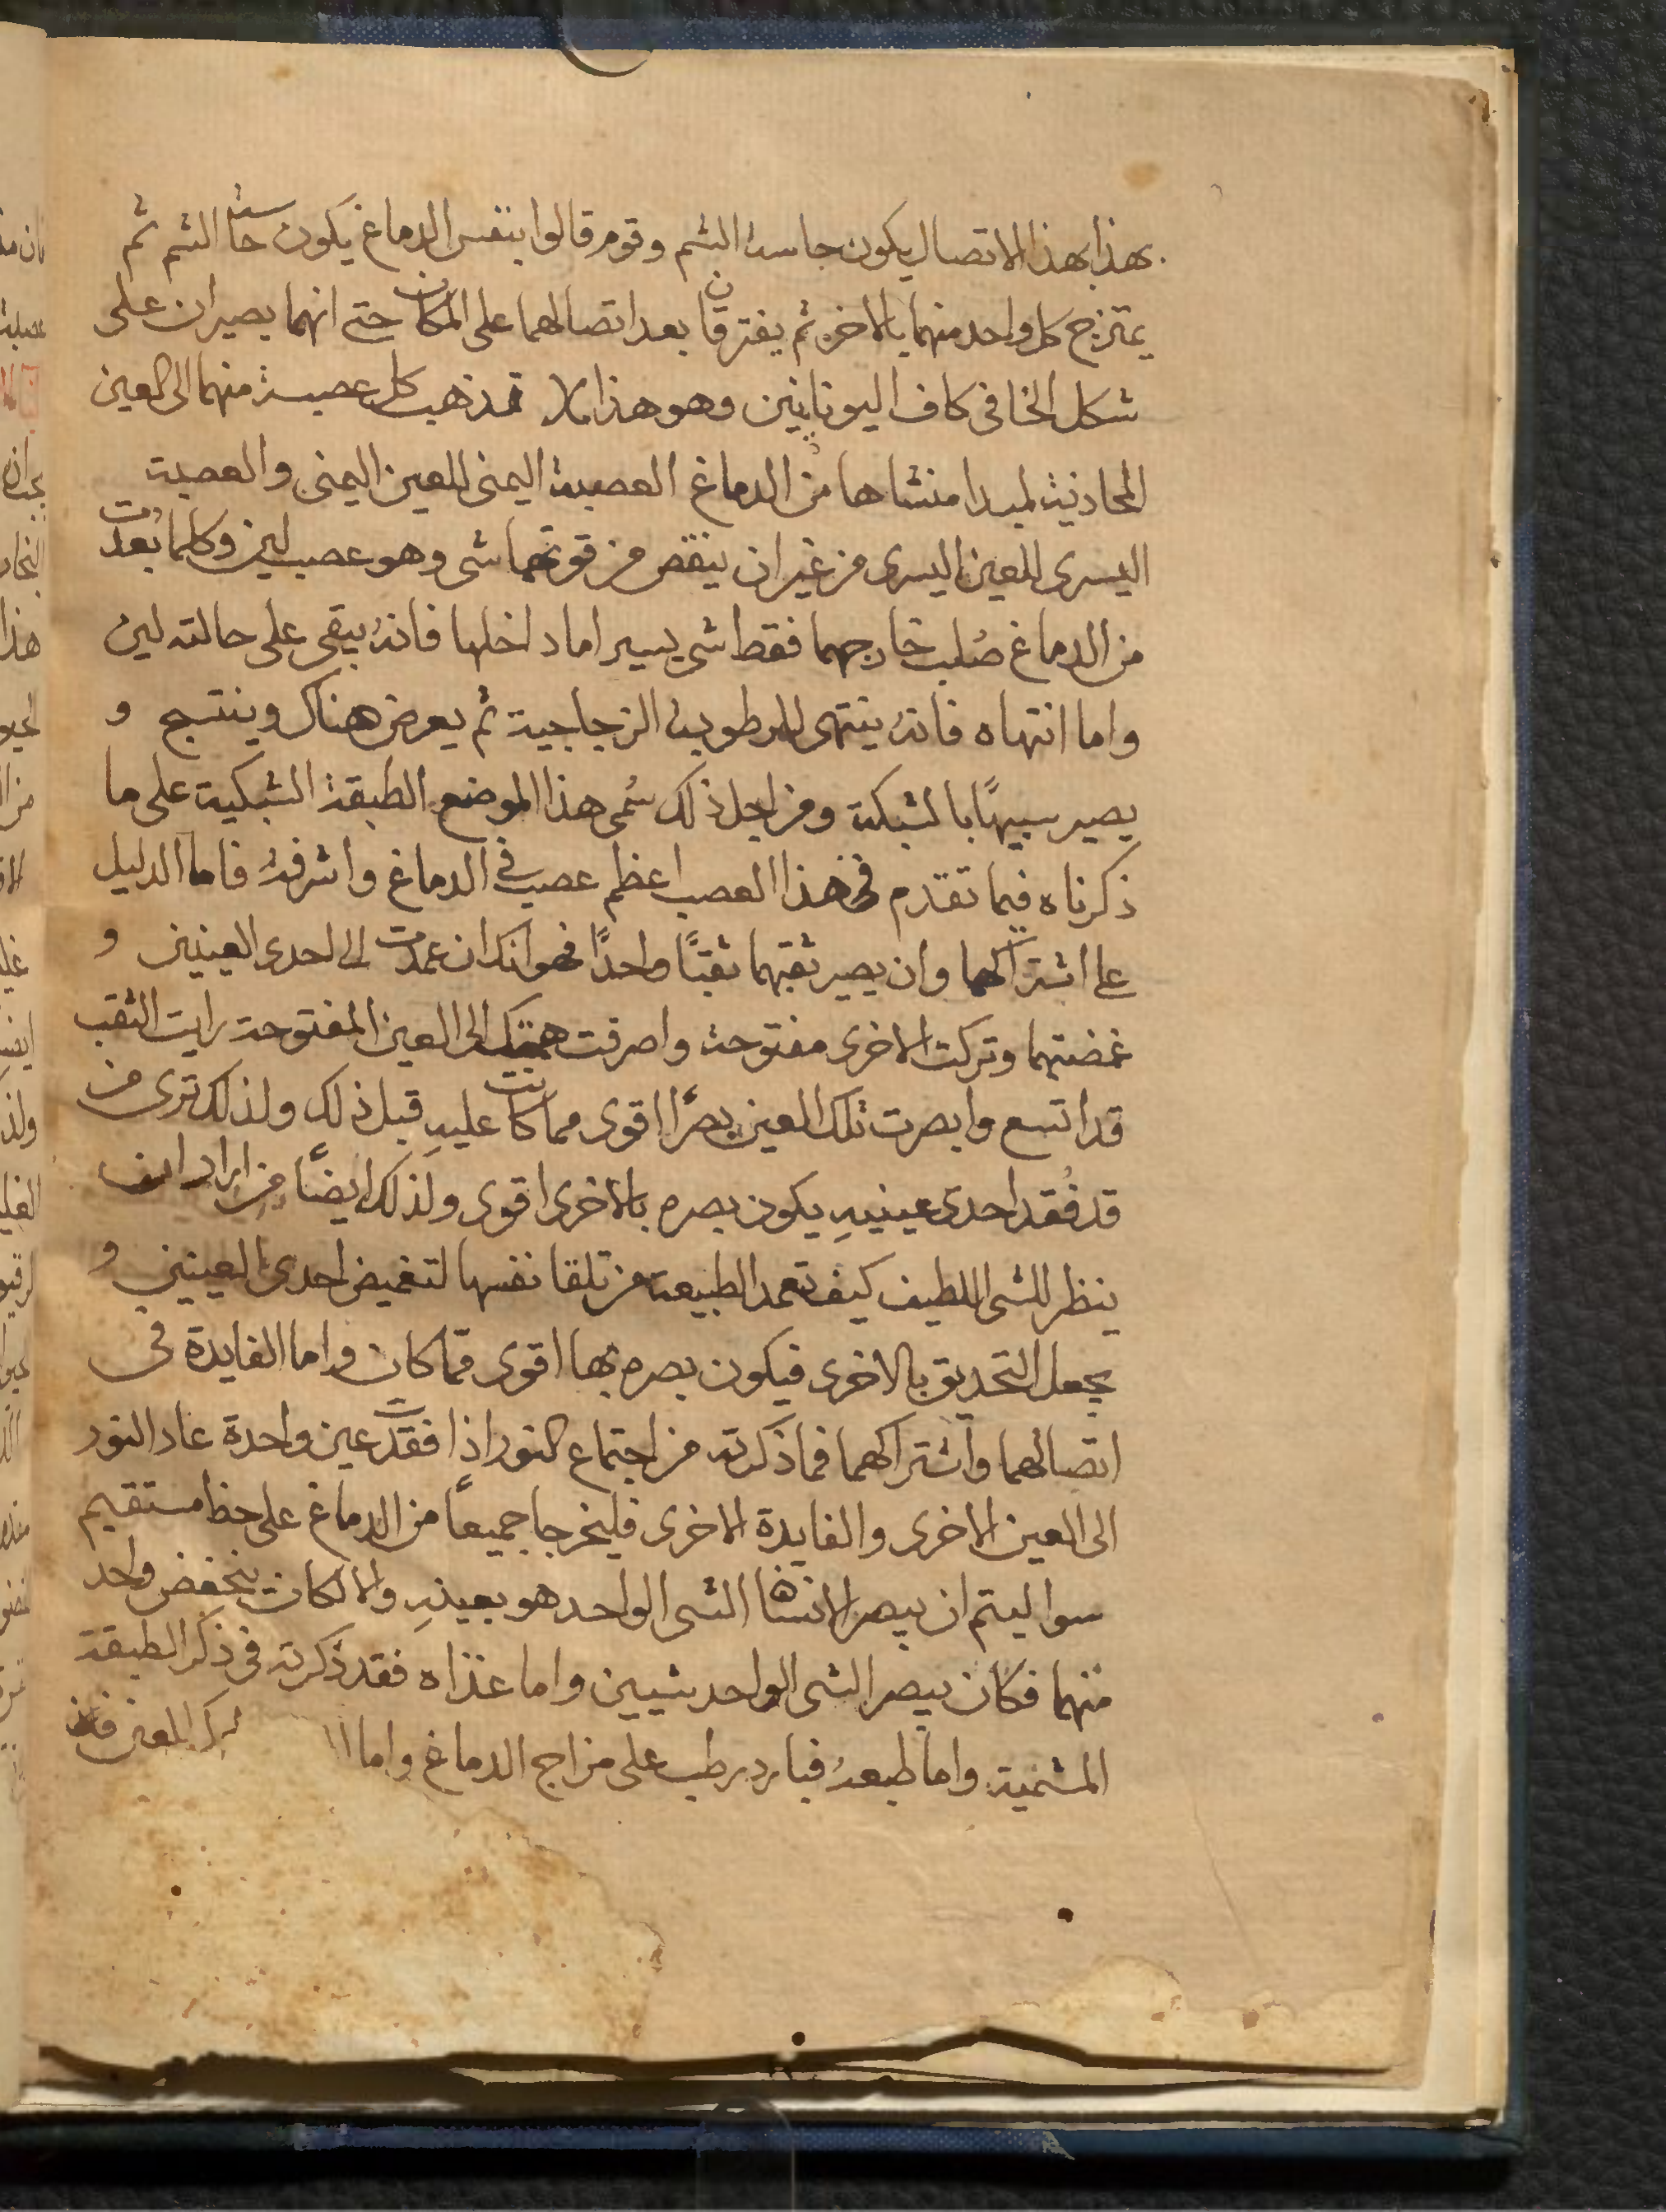 بهذا بهذا الاتصال يكون حاسة الشم وقوم قالوا بنفس الدماغ يكون حاسة الشم ثم
يمتزج كل واحد منهما بالاخر ثم يفترقان بعد اتصالهما على المكان حتى انهما يصيران على
شكل الخافى كاف اليونانيين وهو هذا قد ذهب كل عصبة منهما الى العين
المحاذية لمبدا منشاها من الدماغ العصبة اليمنى للعين اليمنى والعصبة
اليسرى للعين اليسرى من غير ان ينقص من قوتهما شى وهو عصب لين وكلما بعدت
من الدماغ صُلب خارجهما فقط شى يسير اما داخلها فانه يبقى على حالته لين
واما انتهاه فانه ينتهى للرطوبة الزجاجية ثم يعرض هناك وينتسج و
يصير سبيهًا بالشبكة ومن اجل ذلك سُمى هذا الموضع الطبقة الشبكية على ما
ذكرناه فيما تقدم فى هذا العصب اعظم عصب فى الدماغ واشرفه فاما الدليل
على اشتراكهما وان يصير ثقبهما ثقبًا واحدًا فهو انك ان عمدت الى احدى العينين و
غمضتهما وتركت الاخرى مفتوحة واصرفت همتك الى العين المفتوحة رايت الثقب
قد اتسع وابصرت تلك العين بصرًا اقوى مما كانت عليهِ قبل ذلك ولذلك ترى من
قد فُقد احدى عينيهِ يكون بصره بالاخرى اقوى ولذلك ايضًا من اراد ان
ينظر للشى اللطيف كيف تعمد الطبيعة من تلقا نفسها لتغميض احدى العينين و
يجعل التحديق بالاخرى فيكون بصره بها اقوى مما كان واما الفايدة فى
اتصالهما واشتراكهما فما ذكرته من اجتماع النور اذا فقدت عين واحدة عاد النور
الى العين الاخرى والفايدة الاخرى فليخرجا جميعًا من الدماغ على خط مستقيم
سوا ليتم ان يبصر الانسان الشى الواحد هو بعينهِ والا لكان ينخفض واحد
منهما فكان يبصر الشى الواحد شيين واما غذاه فقد ذكرته فى ذكر الطبقة
المشمية واما طبعهُ فبارد رطب على مزاج الدماغ واما العين